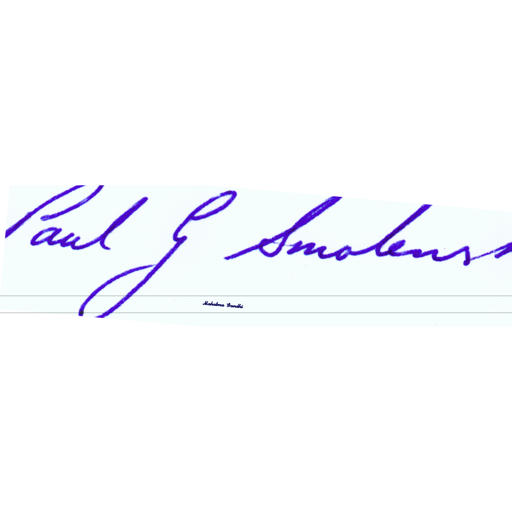 Paul G Smolens
Mahatma Gandhi